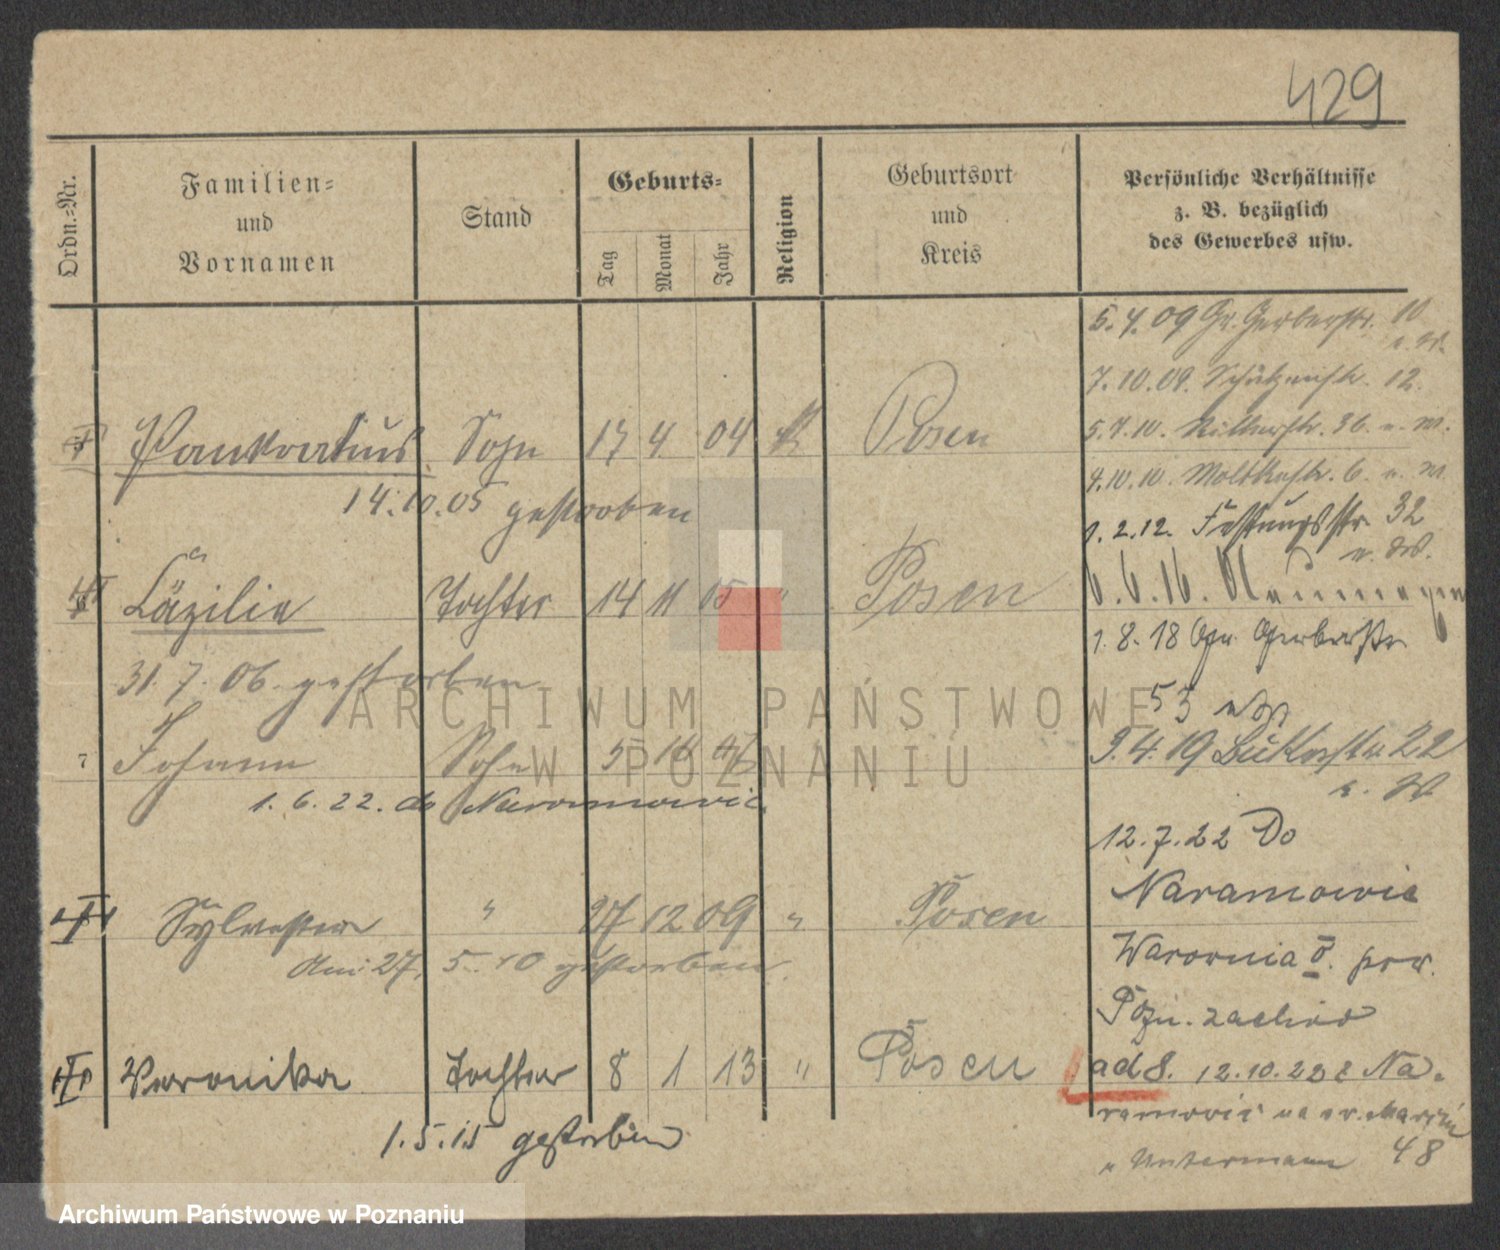 429
Ordn.-Nr.
Familien-
und
Vornamen
Stand
Geburts-
Tag
Monat
Jahr
Religion
Geburtsort
und
Kreis
Persönliche Verhältnisse
z. B. bezüglich
des Gewerbes usw.
5.4.09 Gr. Gerberstr. 10
7.10.09. Schützenstr. 12.
Pankratius Sohn 17 4 04 k Posen
5.4.10. Ritterstr. 36.
14.10.05 gestorben
4.10.10. Moltkestr. 6.
1.2.12. Festungsstr. 32
Cäzilie Tochter 14 11 05 " Posen
6.6.16.
1.8.18 Gr. Gerberstr
31.7.06. gestorben
53
7 Johann Sohn 5 16
9.4.19 22
1.6.22. do Naramowic
12.7.22 Do
Naramowic
Sylvester " 27 12 09 " Posen
Am 27. 5. 10 gestorben.
Warownia V. pow.
Pozn. zachód
Veronika Tochter 8 1 13 " Posen
ad 8. 12.10.22 z Na-
ramowic na św. Marcin
48
1.5.15 gestorben
ARCHIWUM PAŃSTWOWE
W POZNANIU
Archiwum Państwowe w Poznaniu